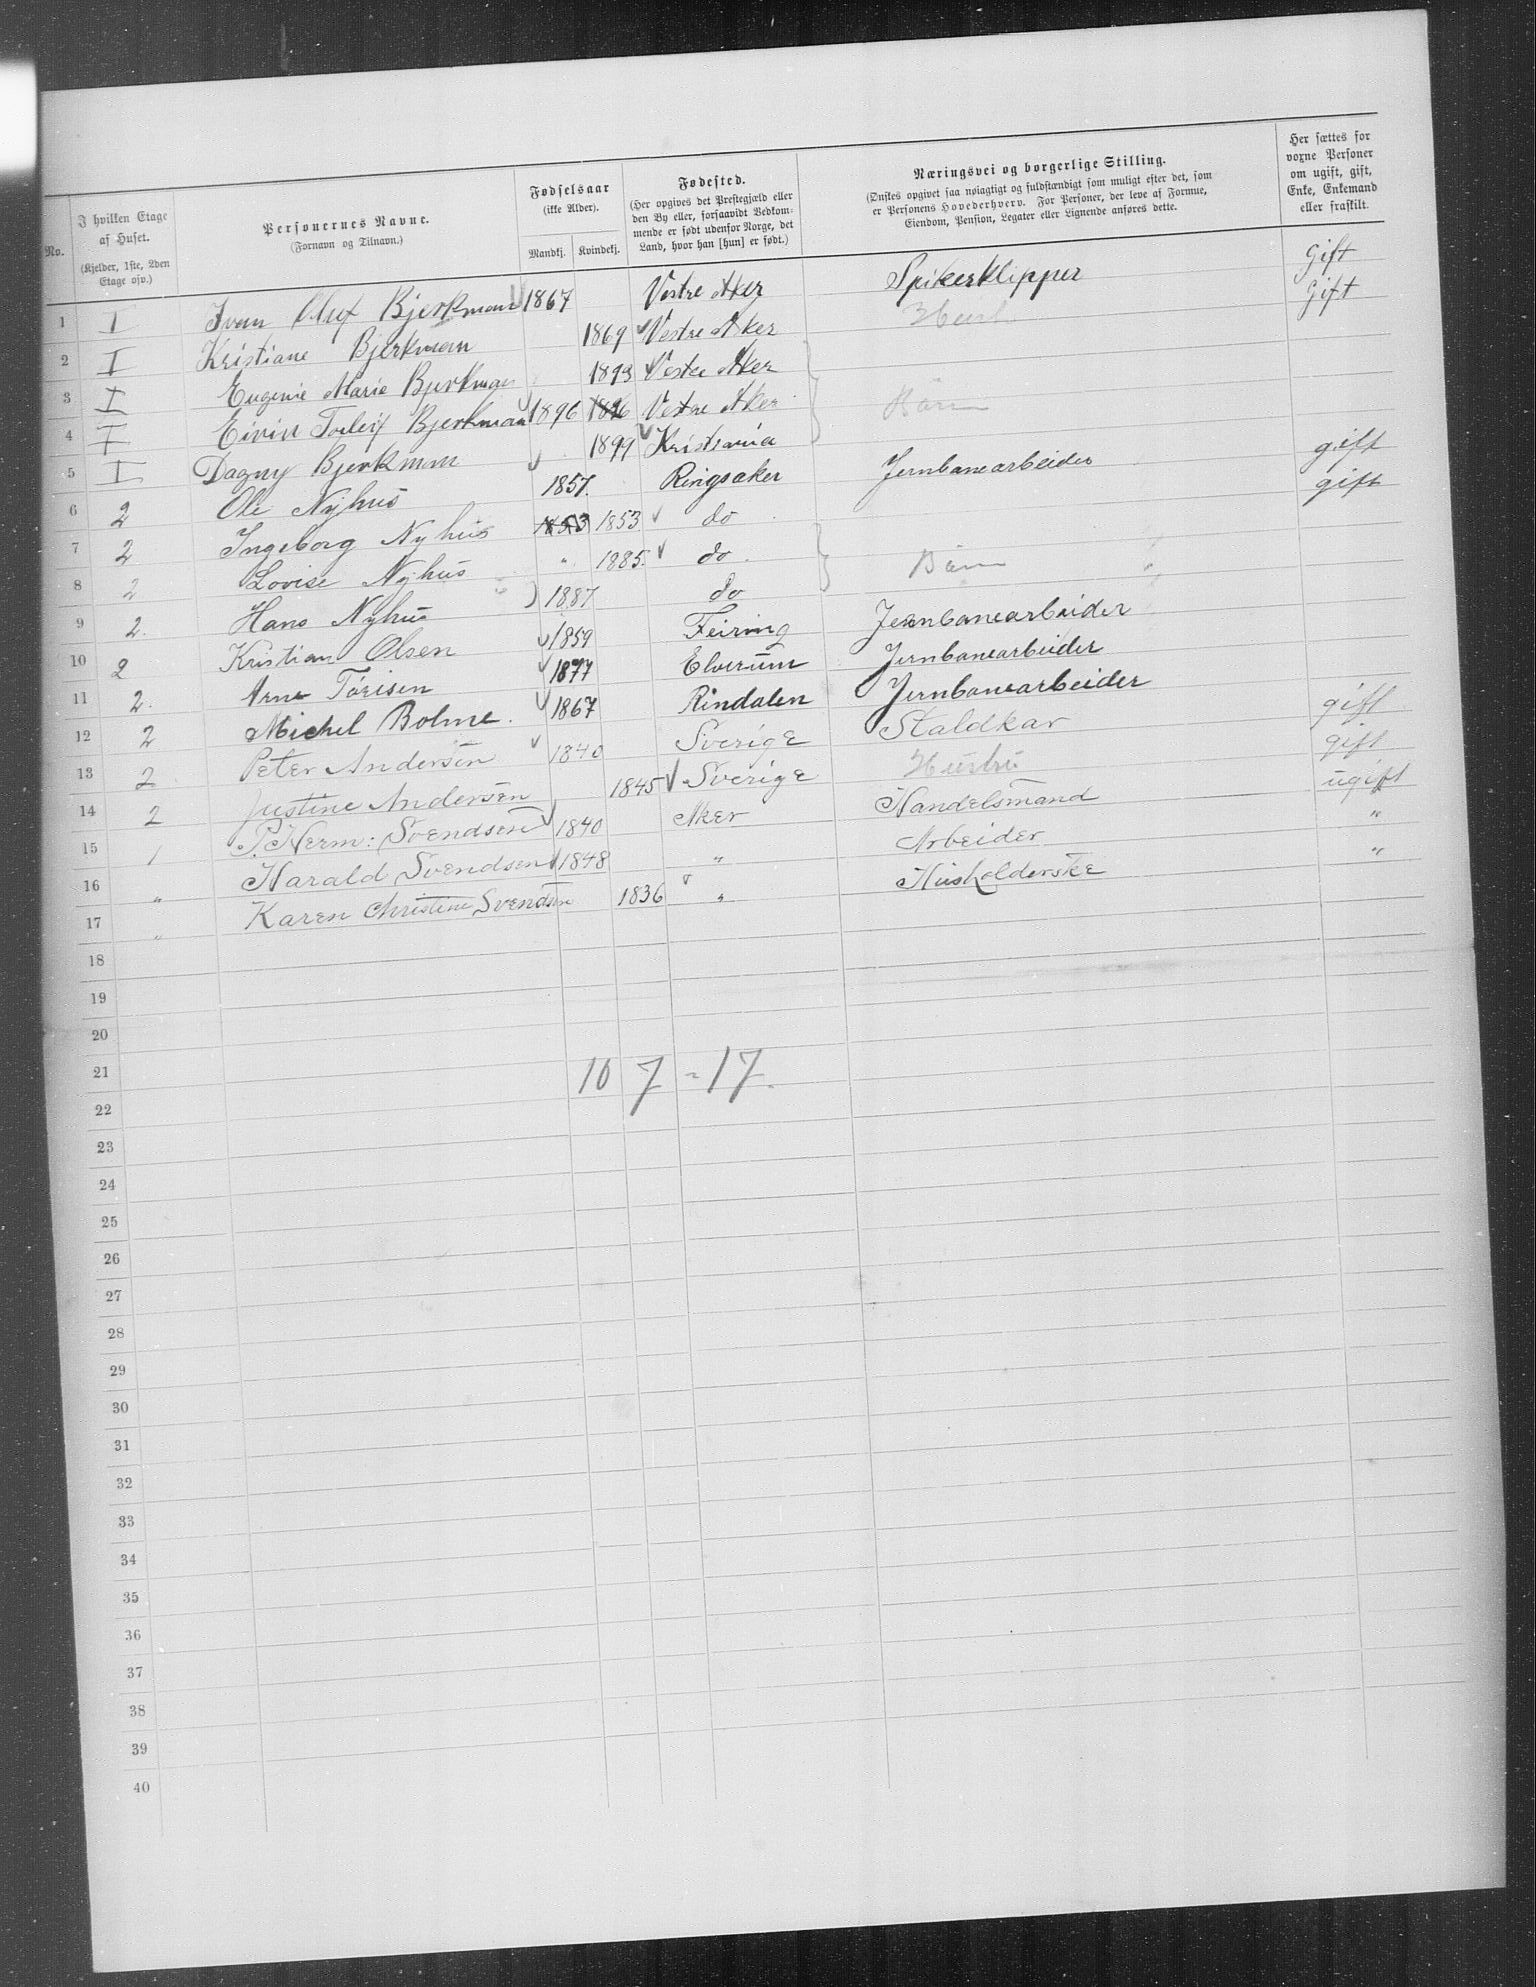 No. | I hvilken Etage af Huset. (Kjelder, 1ste, 2den Etage osv.) | Personernes Navne. (Fornavn og Tilnavn.) | Fødselsaar (ikke Alder). Mandkj. | Kvindekj. | Fødested. (Her opgives det Prestegjæld eller den By eller, forsaavidt Vedkommende er født udenfor Norge, det Land, hvor han [hun] er født.) | Næringsvei og borgerlige Stilling. (Ønskes opgivet saa nøiagtigt og fuldstændigt som muligt efter det, som er Personens Hovederhverv. For Personer, der leve af Formue, Eiendom, Pension, Legater eller Lignende anføres dette. | Her sættes for voxne Personer om ugift, gift, Enke, Enkemand eller fraskilt.
1 I Ivan Oluf Bjerkman 1867 Vestre Aker Spikerklipper Gift
2 I Kristiane Bjerkman 1869 Vestre Aker Gift
3 I Eugenie Marie Bjerkman 1893 Vestre Aker
4 I Eivin Torleif Bjerkman 1896 1896 Vestre Aker Børn
5 I Dagny Bjerkman 1899 Kristiania
6 2 Ole Nyhus 1857. Ringsaker Jernbanearbeider gift
7 2 Ingeborg Nyhus 1853 1853 do gift
8 2 Lovise Nyhus " 1885. do. Børn
9 2. Hans Nyhus 1887 do
10 2 Kristian Olsen 1859 Feiring Jernbanearbeider
11 2. Arne Törisen 1877 Elverum Jernbanearbeider
12 2 Michel Bolme. 1867 Rindalen Jernbanearbeider
13 2 Peter Andersen 1840 Sverige Staldkar gift
14 2 Justine Andersen 1845 Sverige Hustru gift
15 1 P. Herm: Svendsen 1840 Aker Handelsmand ugift
16 " Harald Svendsen 1848 " Arbeider "
17 " Karen Christine Svendsen 1836 " Husholderske "
18
19
20
21 10 7 = 17.
22
23
24
25
26
27
28
29
30
31
32
33
34
35
36
37
38
39
40